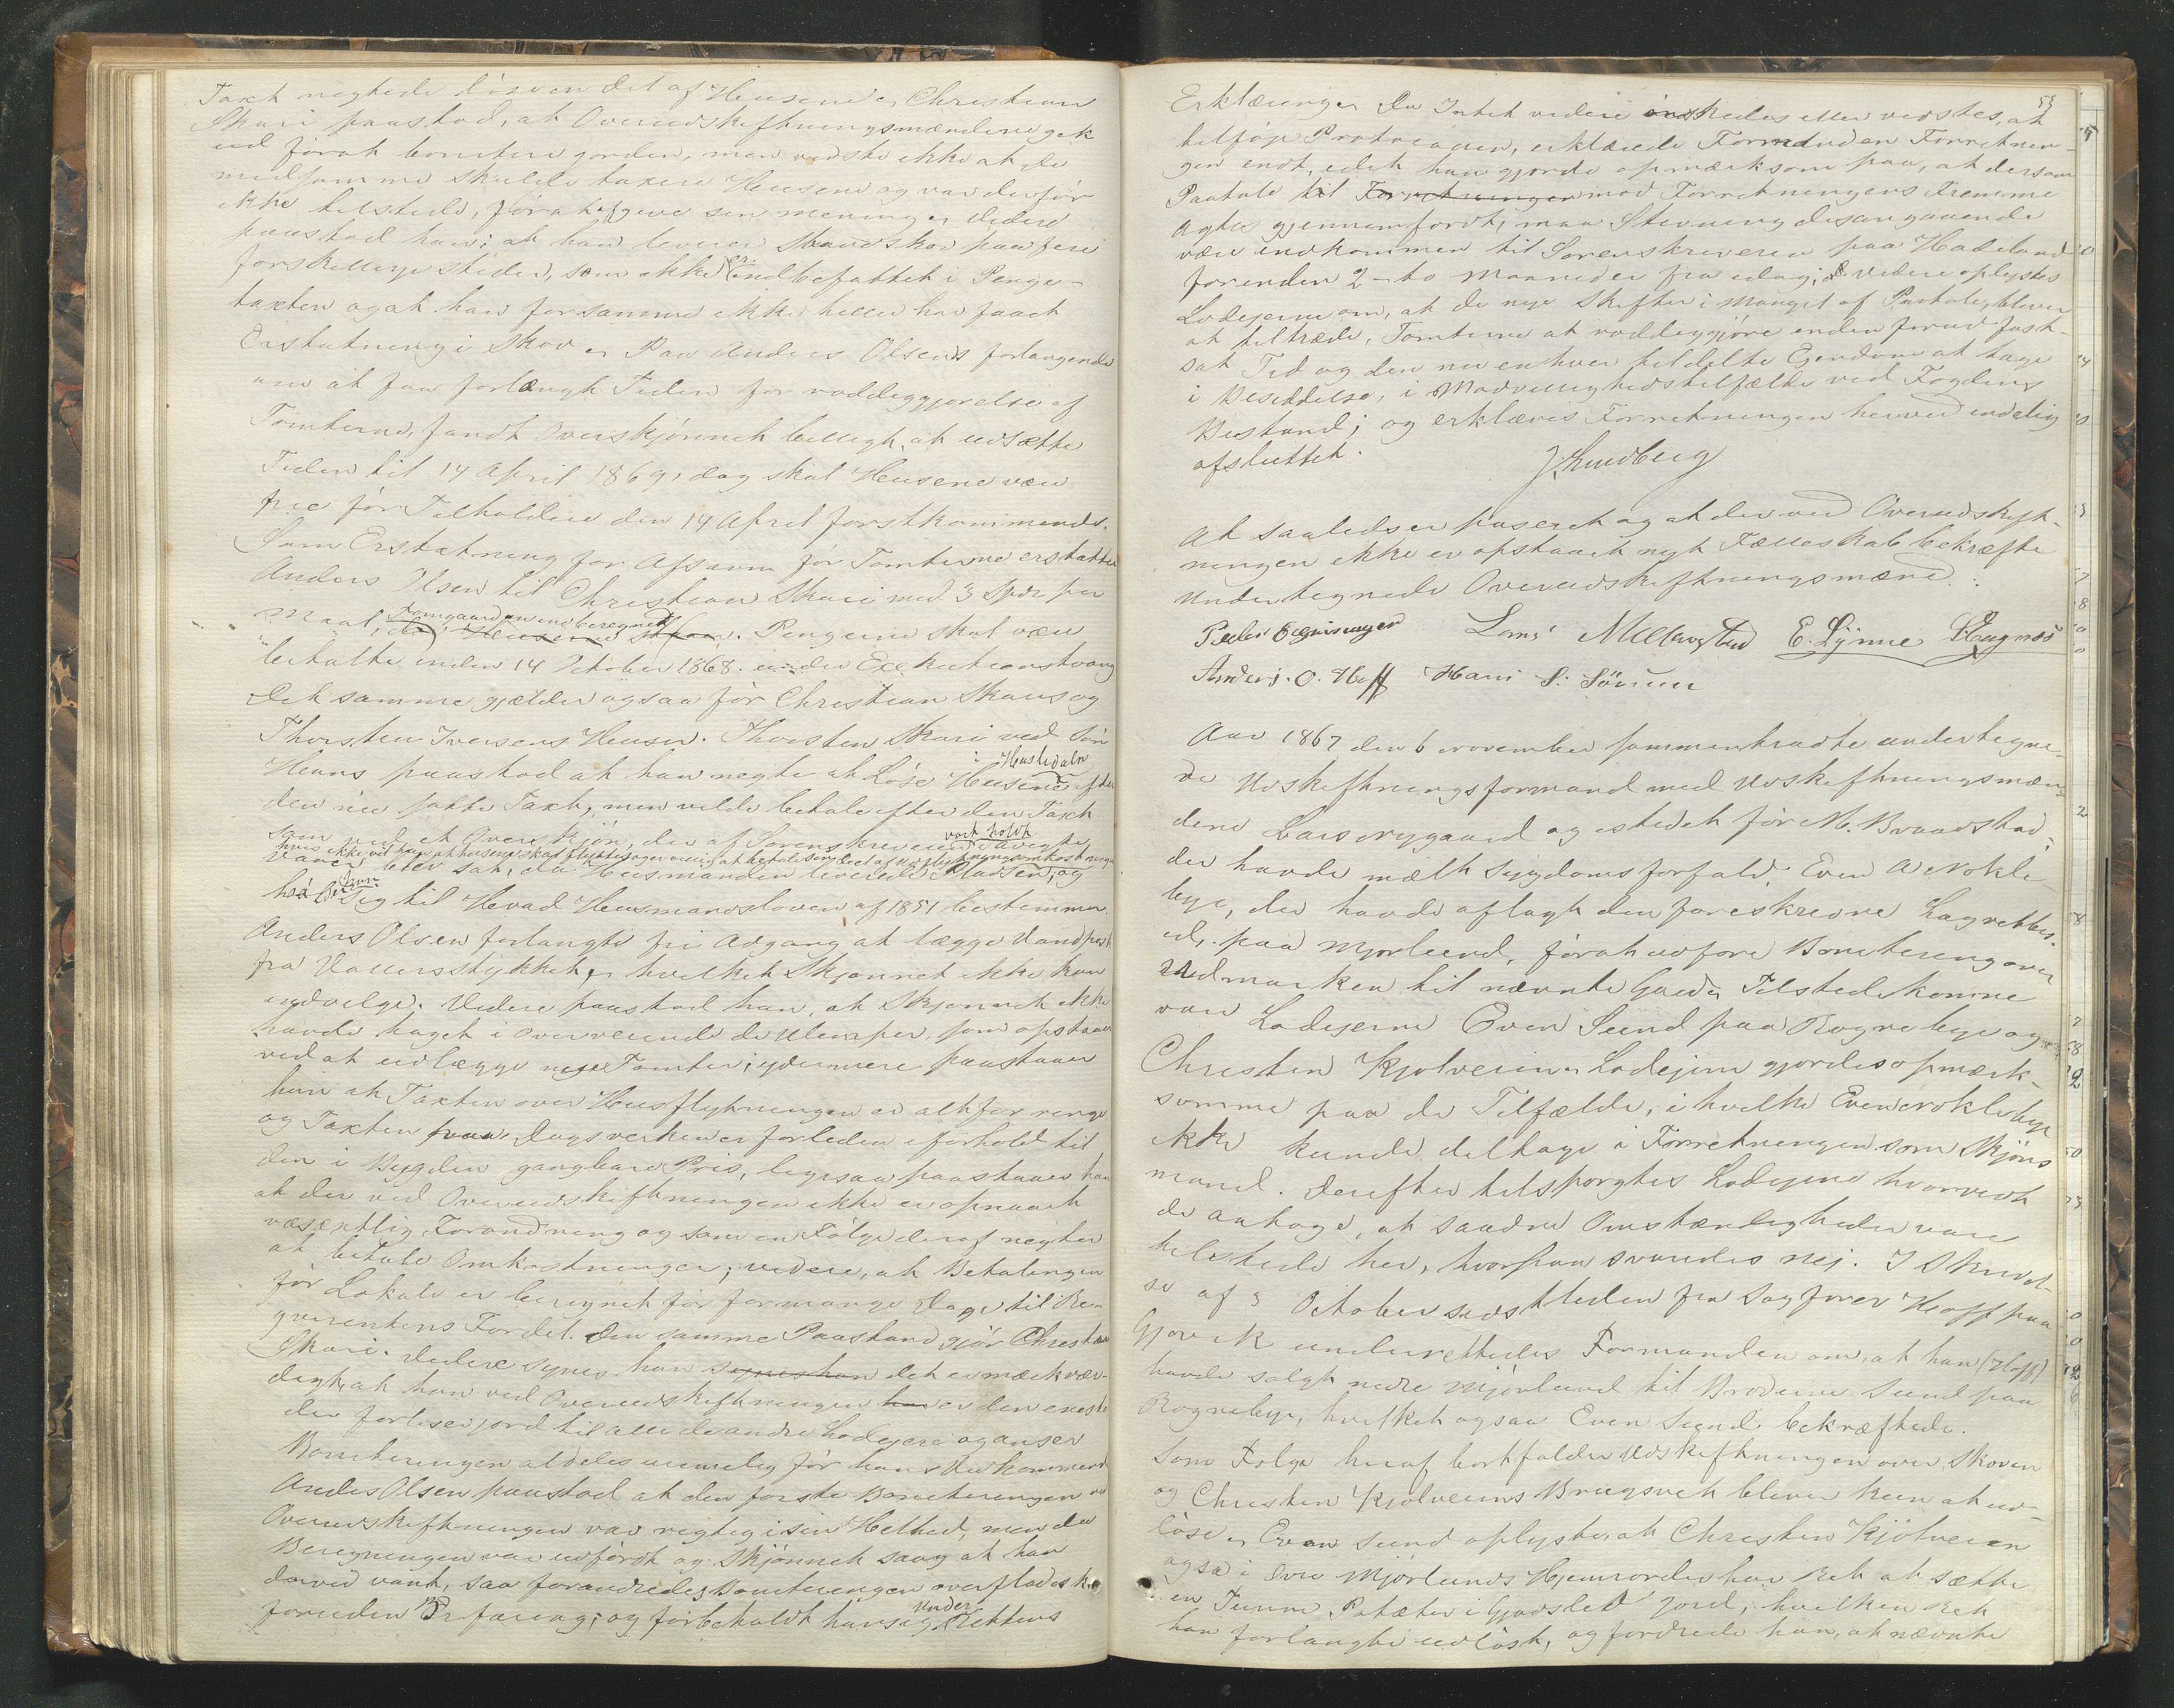 Taxt negtede løse en Del af Husene. Christian
Skari paastod, at Overudskiftningsmændene gik
ud forat bonitere jorden, men vidste ikke at de
medsamme skulde taxere Husene og var derfor
ikke tilstede, forat afgive sin mening. Videre
paastod han: at han leverer Havnskov paa flere
forskellige steder, som ikke er indbefattet i Penge-
taxten og at han for samme ikke heller har faaet
Erstatning i Skov. Paa Anders Olsens forlangende
om at faa forlængt Tiden for ryddeggjørelse af
Tomterne, fandt Overskjønnet billigt, at udsætte
Tiden til 14 April 1869, dog skal Husene være
frie for Tilholdere den 14 April førstkommende.
Som Erstatning for Afsavn for Tomterne erstatter
Anders Olsen til Christian Skari med 3 Spdr per
Tomgaarden indberegnet
Maal, der Husene staar. Pengene skal være
betalte inden 14 October 1868. under Exekutionstvang
Det samme gjælder ogsaa for Christian Skaris og
Thorsten Iversens Huser. Thorsten Skari ved Søn
i Hustedaln
Hans paastod at han negte at Løse Husene efter
den nu satte Taxt, men vilde betale efter den Taxt
vart holdt
som ved et Overskjøn, der af Sorenskriveren
blev sat, da Husmanden leverede Pladsen, og
han
beraabte sig til Hvad Husmandsloven af 1851 bestemmer.
Anders Olsen forlangte fri Adgang at lægge Vandpost
fra Vallersstykket, hvilket Skjønnet ikke kan
indvilge. Videre paastod han, at Skjønnet ikke
havde taget i overveiende de Ulemper, som opstaaer
ved at udlægge nye Tomter; ydermere paastaaer
han at Taxten over Husflytningen er altfor ringe
og Taxten paa Dagsverker er forliden i forhold til
den i Bygden gangbare Pris, ligesaa paastaaes han
at der ved Overudskiftningen ikke er opnaaet
væsentlig Forandring og som en Følge deraf negter
at betale Omkostninger; videre, at Betalingen
for Lokale er beregnet for formange Dage til Re-
qvirentens Fordel. Den samme Paastand gjør Christian
Skari. Videre synes han synes han det er mærkvær-
digt, at han ved Overudskiftningen har er den eneste
der forliser jord til alle de andre Lodeiere og anser
Boniteringen aldeles urimelig for hans Vedkommend
Anders Olsen paastod at den første Boniteringen ved
Overudskiftningen var rigtig i sin Helhed, men da
Beregningen var udført og Skjønnet saag at han
derved vant, saa forandredes Boniteringen overfladisk
foruden Befaring; og forbeholdt han sig Under-Rettens
53
Erklæringer Da Intet videre ønskedes eller vidstes, at
tilføje Protocollen, erklærede Formanden Forretnin-
gen endt, idet han gjorde opmærksom paa, at dersom
Paatale til Forretningen mod Forretningens Fremme
agtes gjennemført, maa Stevning desangaaende
være indkommen til Sorenskriveren paa Hadeland
forenden 2-to Maaneder fra idag; videre oplystes
Lodejerne om, at de nye Skifter i mangel af Paatale, bliver
at tiltræde, Tomterne at ryddeggjøre inden forud fast-
sat Tid og den nu enhver tildelte Ejendom at tage
i Besiddelse, i Modvillighedstilfælde ved Fogdens
Bistand; og erklæres Forretningen herved endelig
afsluttet.
J. Lundberg
At saaledes er passeret og at der ved Overudskift-
ningen ikke er opstaaet nyt Fælleskab bekræfte
undertegnede Overudskiftningsmænd.
Peder Egning Lars Mællangstad E. Lynne
Anders. O. Hoff Hans S: Sønum
Aar 1867 den 6 november sammentraadte undertegne-
de Udskiftningsformand med Udskiftningsmæn-
dene Lars nygaard og istedet for M. Braastad,
der havde mælt Sygdomsforfald, Even A Nøkle-
bye, der havde aflagt den foreskrevne Lagrettes-
ed, paa Mjørlund, forat udføre Bonitering over
Udmarken til nævnte Gaard. Tilstedekomne
var Lodejerne Even Sund paa Rognebye og
Christen Kjølveien. Lodejerne gjordes opmærk-
somme paa de Tilfælde, i hvilke Even Nøklebye
ikke kunde deltage i Forretningen som Skjøns
mand. Derefter tilspørgtes Lodejerne hvorvidt
de antoge, at saadne Omstændigheder vare
tilstede her, hvorpaa svaredes nej. I Skrivel-
se af 3 October sidstleden fra Sagfører Hoff paa
Gjøvik underrettedes Formanden om, at han (Hoff)
havde solgt nedre Mjørlund til Brødrene Sund paa
Rognebye, hvilket ogsaa Even Sund bekræftede.
Som Følge heraf bortfalder Udskiftningen over Skoven
og Christen Kjølveiens Brugsret bliver kun at ud-
løse. Even Sund oplyste, at Christen Kjølveien
ogsa i Øvre Mjørlunds Hjemjorder har Ret at sætte
en Tønne Potæter i Gjødslet jord, hvilken Ret
han forlangte udløst, og fordrede han, at nævnte